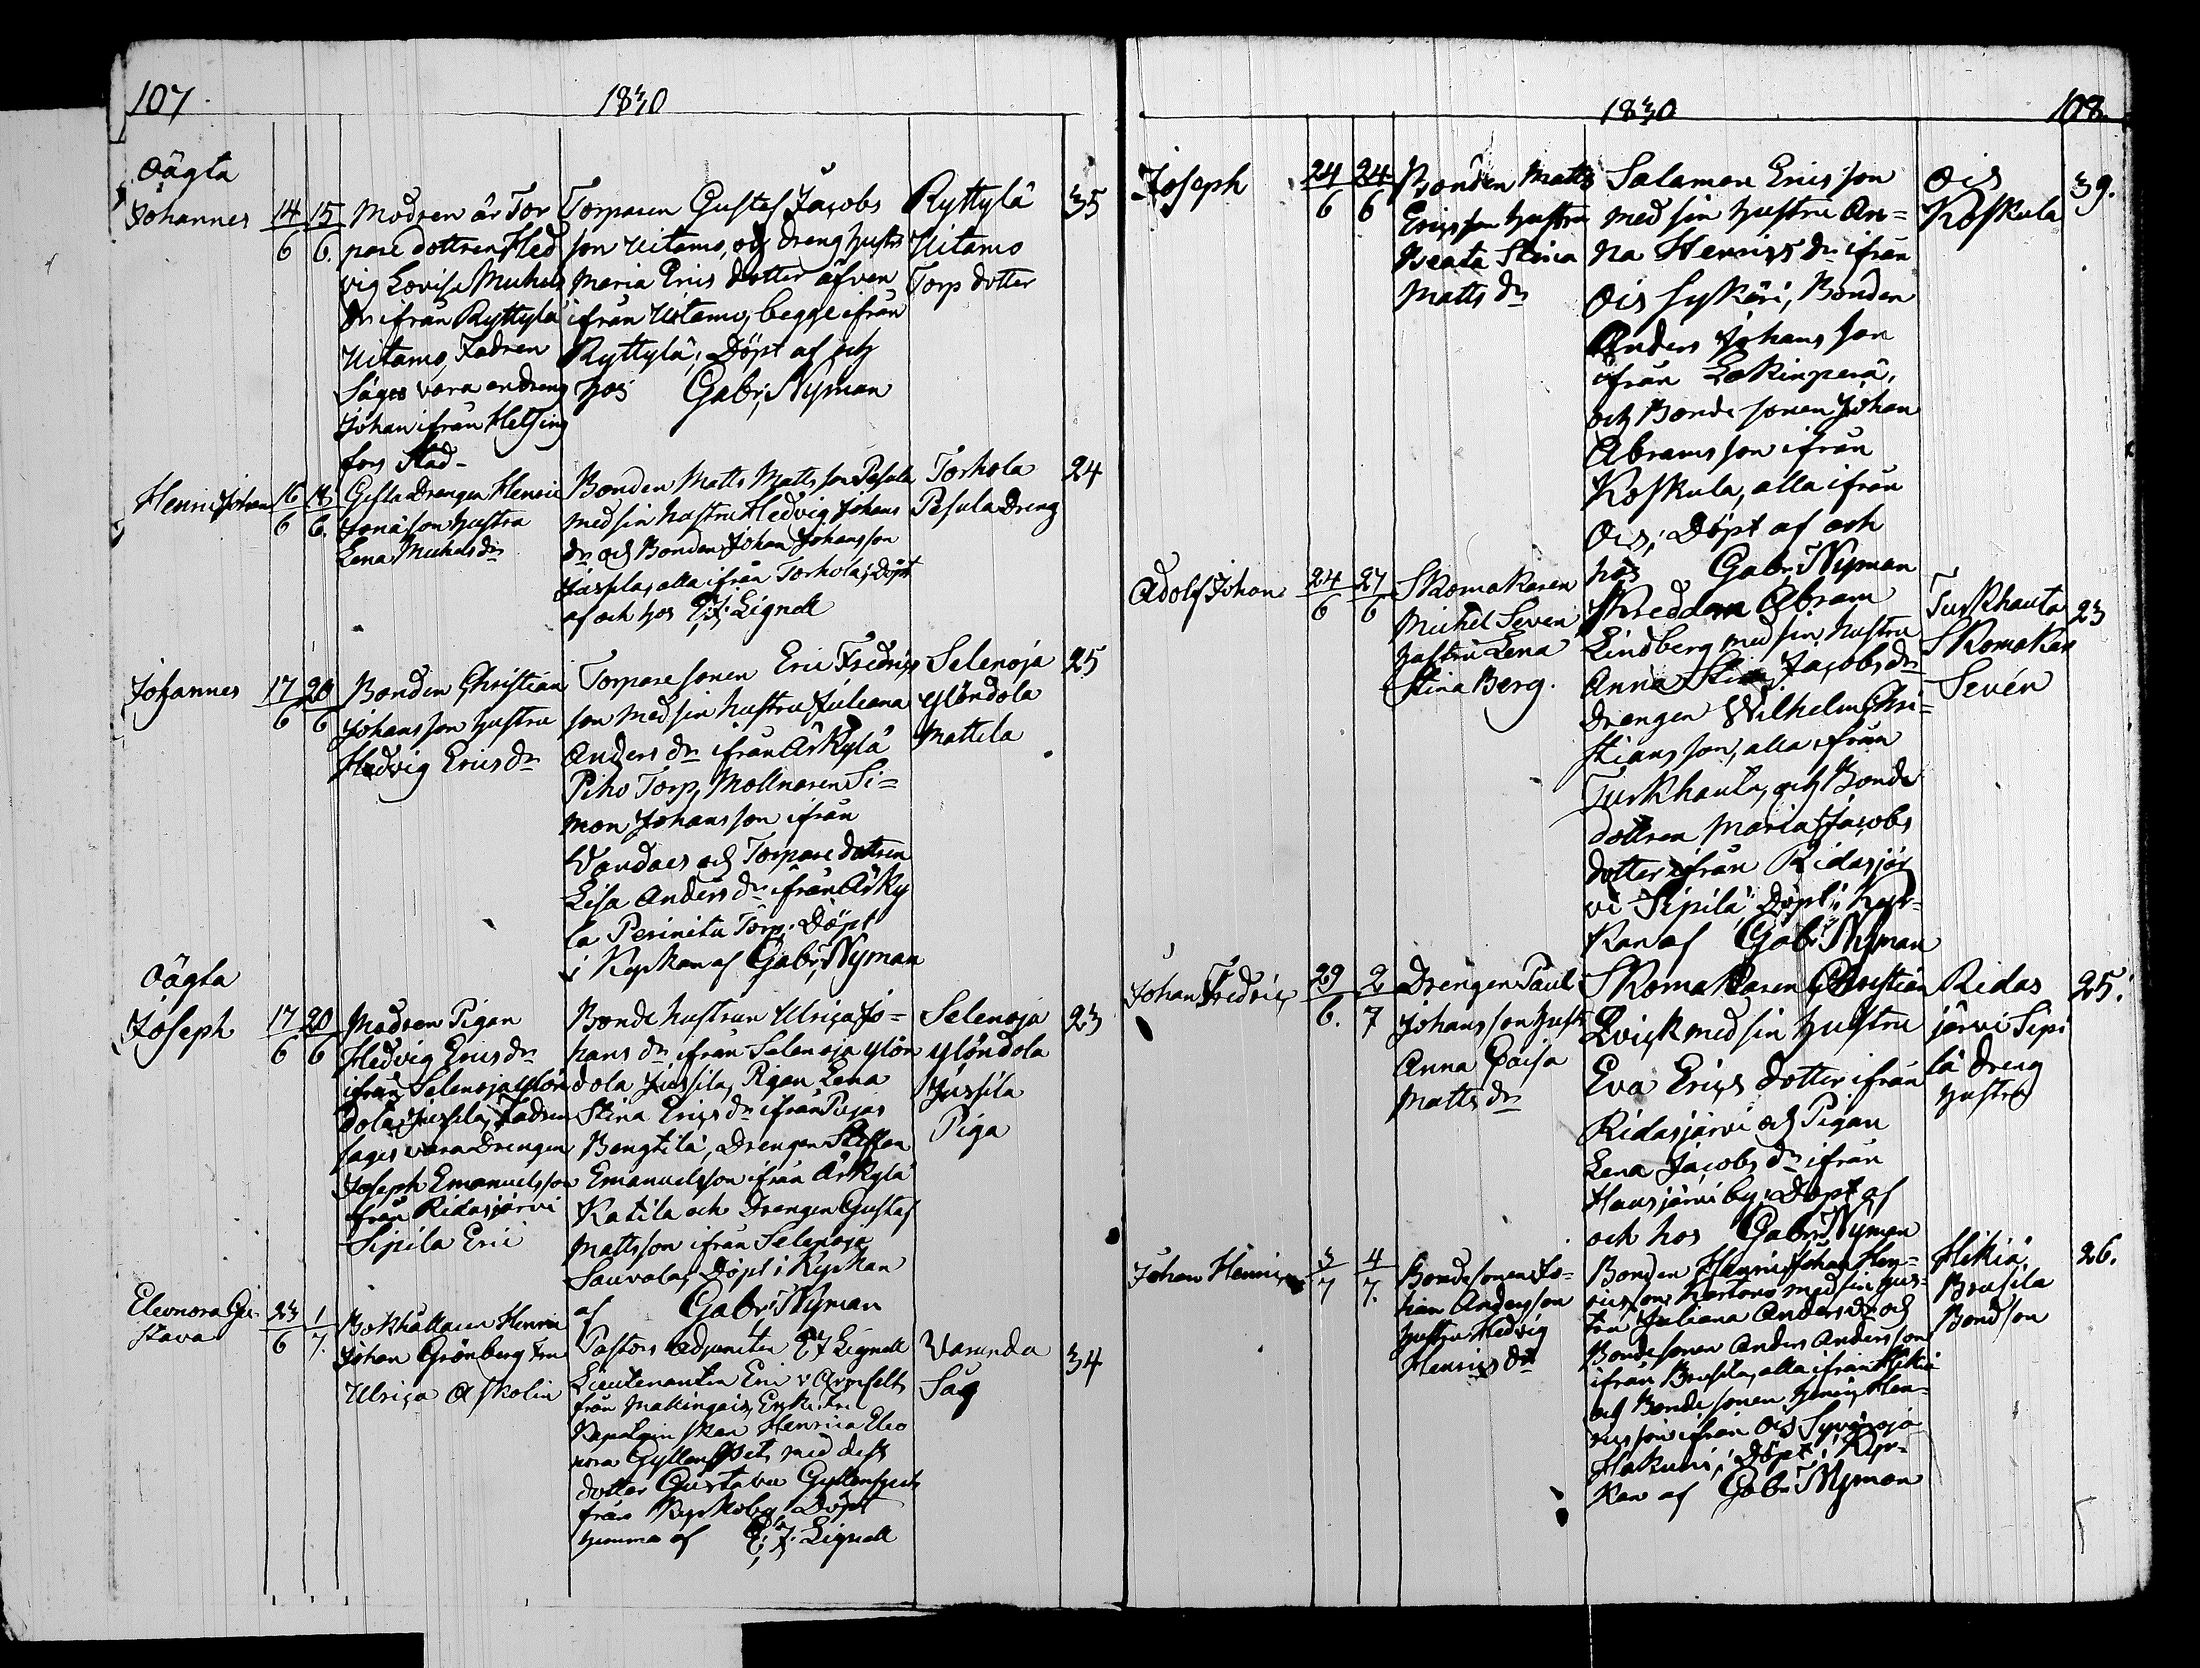 107.
1830
Oägta
Johannes 14/6 15/6.
Modren är Tor
pare dottren Hed
vig Lovisa Michels
dr ifrån Ryttylä
Uitamo, Fadren
Säges vara en dreng
Johan ifrån Helsing
fors Stad-
Torparen Gustaf Jacobs
son Uitamo, och dreng hustr
Maria Erics dotter äfven
ifrån Uitamo, begge ifrån
Ryttylä; Döpt af och
hos Gabr: Nyman
Ryttylä
Uitamo
Torp dotter
35
Henric Johan 16/6 18/6.
Gesla Drengen Henric
Jonæson hustru
Lena Michels dr
Bonden Matts Mattsson Pesula
med sin hustru Hedvig Johans
dr och Bonden Johan Johansson
Jussila, alla ifrån Torhola; Döpt
af och hos E: J: Lignell
Torhola
Pesula Dreng
24
Johannes 17/6 20/6
Bonden Christian
Johansson hustru
Hedvig Erics dr
Torpare sonen Eric Fredrics
son med sin hustru Juliana
Anders dr ifrån Ärkylä
Piho Torp, Mollnaren Si=
mon Johansson ifrån
Vandaes och Torpare dottren
Lisa Anders dr ifrån Ärky
lä Perinitu Torp; Döpt
i Kyrkan af Gabr: Nyman
Selenoja
Ylöndola
Mattila
25
Oägta
Joseph 17/6 20/6
Modren Pigan
Hedvig Erics dr
ifrån Selenoja Ylön
dola Jussila, Fadren
sages vara Drengen
Joseph Emanuelsson
från Ridasjärvi
Sipilä Eric
Bonde hustrun Ulrica Jo=
hans dr ifrån Selenoja Ylön
dola Jussila, Pigan Lena
Stina Erics dr ifrån Pujas
Bengtilä, Drengen Steffan
Emanuelsson ifrån Ärkylä
Katila och Drengen Gustaf
Mattsson ifrån Selenoja
Sauvala; Döpt i Kyrkan
af Gabr: Nyman
Selenoja
Ylöndola
Jussila
Piga
23
Eleonora Gu
stava 23/6 1/7.
Bokhållaren Henric
Johan Grönberg Fru
Ulrica Askolin
Pastors Adjuncten E: J Lignell
Lieutenanten Eric v Armfelt
från Makingais, Enke Fru
Kapitainskan Henrica Eleo
nora Gyllenspets med dess
dotter Gustava Gyllenspets
från Kyrkoby; Döpt
hemma af E: J: Lignell
Vasunda
Såg
34
1830
108.
Joseph 24/6 24/6
Bonden Matts
Ericsson hustru
Beata Stina
Matts dr
Salamon Ericsson
med sin hustru An=
na Henrics dr ifrån
Ois Syskäri, Bonden
Anders Johansson
ifrån Lakinperä,
och Bonde sonen Johan
Abramsson ifrån
Koskula, alla ifrån
Ois; Döpt af och
hos Gabr: Nyman
Ois
Koskula
39.
Adolf Johan 24/6 27/6
Skomakaren
Michel Seven
hustru Lena
Stina Berg.
Skreddaren Abram
Lindberg med sin hustru
Anna Stina Jacobs dr
Drengen Wilhelm Chri=
stiansson, alla ifrån
Turkhauta, och Bonde
dottren Maria Jacobs
dotter ifrån Ridasjär
vi Sipilä: Döpt i Kyr=
kan af Gabr: Nyman
Turkhauta
Skomakar
Sevén
23
Johan Fredric 29/6. 2/7
Drengen Paul
Johansson hustr
Anna Caisa
Matts dr
Skomakaren Christian
Qvick med sin hustru
Eva Erics dotter ifrån
Ridasjärvi och Pigan
Lena Jacobs dr ifrån
Hausjärvi by; Döpt af
och hos Gabr: Nyman
Ridas
järvi Sipi
lä Dreng
hustru
25.
Johan Henric 3/7 4/7.
Bonde sonen Jo=
han Andersson
hustru Hedvig
Henrics dr
Bonden Henric Johan Hen=
ricsson Kertano med sin hus=
tru Juliana Anders dr och
Bonde sonen Anders Andersson
ifrån Brusila, alla ifrån Hikiä
och Bonde sonen Henric Hen=
ricsson ifrån Ois Syvänoja
Hakuni; Döpt i Kyr=
kan af Gabr: Nyman
Hikiä
Brusila
Bondson
26.